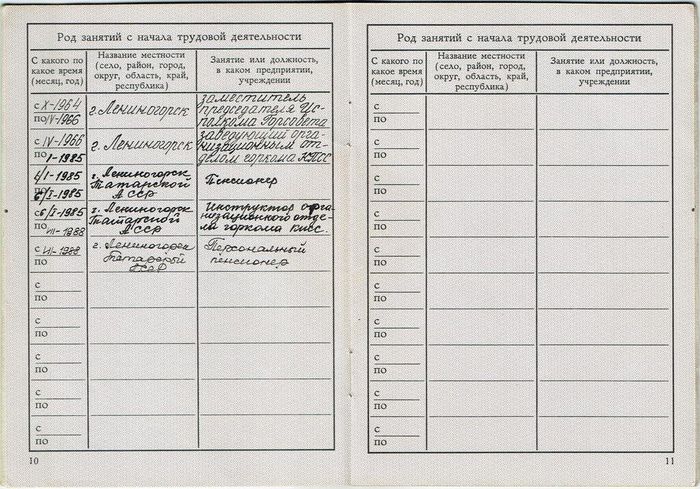 Род занятий с начала трудовой деятельности
С какого по
какое время
(месяц, год)
Название местности
(село, район, город,
округ, область, край,
республика)
Занятие или должность,
в каком предприятии,
учреждении
с X-1964
по IV-1966
г. Лениногорск
заместитель
председателя Ис-
полкома Горсовета
с IV-1966
по I-1985
г. Лениногорск
заведующий орга-
низационным от-
делом горкома КПСС
4/I-1985
по 6/I-1985
г. Лениногорск
Татарской
АССР
Пенсионер
с 6/I-1985
по VII-1988
г. Лениногорск
Татарской
АССР
Инструктор орга-
низационного отде-
ла горкома КПСС.
с VII-1988
по
г. Лениногорск
Татарской
АССР
Персональный
пенсионер
с
по
с
по
с
по
с
по
с
по
10
Род занятий с начала трудовой деятельности
С какого по
какое время
(месяц, год)
Название местности
(село, район, город,
округ, область, край,
республика)
Занятие или должность,
в каком предприятии,
учреждении
с
по
с
по
с
по
с
по
с
по
с
по
с
по
с
по
с
по
с
по
11